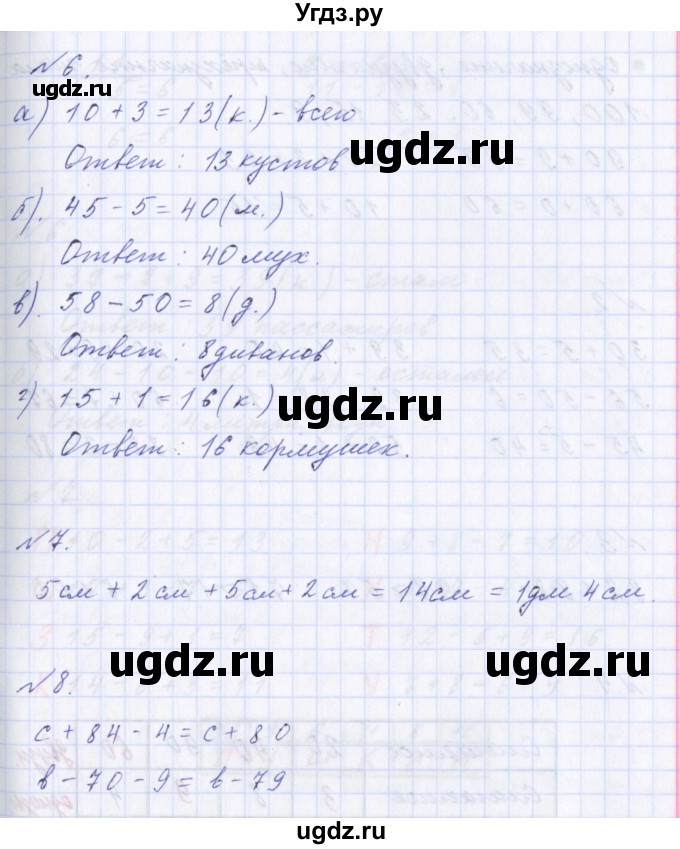 Угдз.ру
№6.
а) 10 + 3 = 13 (к.) - всего
Ответ: 13 кустов
б). 45 - 5 = 40 (м.)
Ответ: 40 мух.
в). 58 - 50 = 8 (д.)
Ответ: 8 диванов.
г) 15 + 1 = 16 (к.)
ugdz.ru ugdz.ru
Ответ: 16 кормушек.
№7.
5 см + 2 см + 5 см + 2 см = 14 см = 1 дм 4 см.
ugdz.ru ugdz.ru
№8.
c + 84 - 4 = c + 80
в - 70 - 9 = в - 79
ugdz.ru